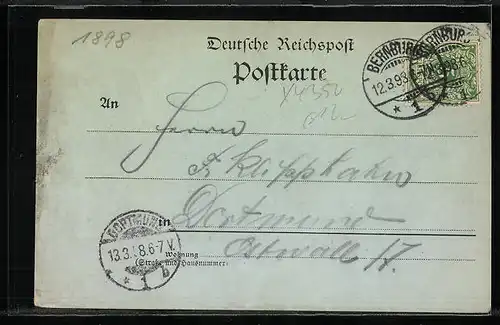 1898
Deutsche Reichspost
Postkarte
BERNBURG
12.3.98
* 1 b
An
Herrn
in Dortmund
Ostwall 17.
Wohnung
(Straße und Hausnummer)
DORTMUND
13.3.98.6-7.V.
* 1 b